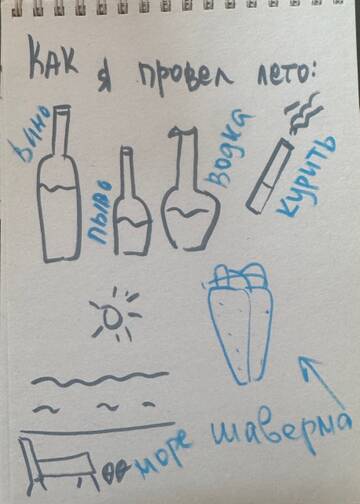 КАК я провел лето:
вино
пыво
водка
курить
море
шаверма